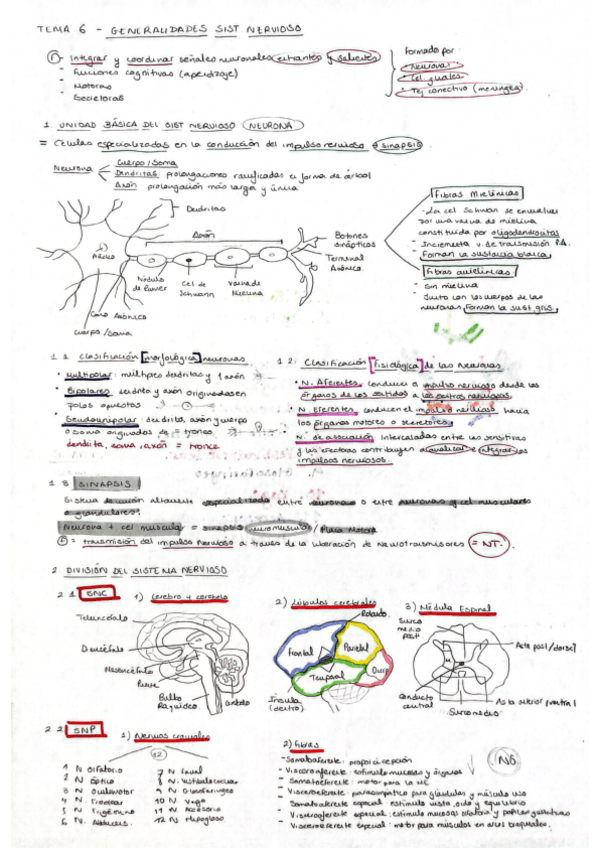 TEMA 6 - GENERALIDADES SIST NERVIOSO
- Integrar y coordinar señales neuronales entrantes y salientes
- Funciones cognitivas (aprendizaje)
- Motoras
- Secretoras
Formado por:
- Neuronas
- Cel gliales
- Tej conectivo (meninges)
1. UNIDAD BÁSICA DEL SIST NERVIOSO NEURONA
= Células especializadas en la conducción del impulso nervioso → sinapsis
Neurona
Cuerpo/Soma
Dendritas prolongaciones ramificadas en forma de árbol
Axón prolongación más larga y única
Dendritas
Axón
Botones sinápticos
Terminal Axónico
Núcleo
Nódulo de Ranvier
Cel de Schwann
Vaina de Mielina
Cono Axónico
Cuerpo/Soma
Fibras Mielínicas
- La cel Schwan se envuelve por una vaina de mielina constituida por oligodendrocitos
- Incrementa v. de transmisión P.A.
- Forman la sustancia blanca
Fibras amielínicas
- Sin mielina
- Junto con los cuerpos de las neuronas, forman la sust gris
1.1. Clasificación morfológica neuronas
• Multipolar: múltiples dendritas y 1 axón
• Bipolares: dendrita y axón originados en polos opuestos
• Seudounipolar: dendrita, axón y cuerpo o soma originados de = tronco
dendrita, soma, axón = tronco
1.2. Clasificación fisiológica de las neuronas
• N. Aferentes: conducen el impulso nervioso desde los órganos de los sentidos a los centros nerviosos
• N. Eferentes: conducen el impulso nervioso hacia los órganos motores o secretores
• N. de asociación: intercaladas entre las sensitivas y las efectoras contribuyen a canalizar e integrar los impulsos nerviosos.
1.3 SINAPSIS
Sistema de unión altamente especializada entre neuronas o entre neuronas y cel musculares o glandulares.
Neurona + cel muscular = sinapsis neuromuscular / Placa Motora
= transmisión del impulso nervioso a través de la liberación de Neurotransmisores = NT.
2. DIVISIÓN DEL SISTEMA NERVIOSO
2.1 SNC
1) Cerebro y cerebelo
Telencéfalo
Diencéfalo
Mesencéfalo
Puente
Bulbo Raquídeo
Cerebelo
2) Lóbulos cerebrales
Rolando
Frontal
Parietal
Temporal
Occip
Ínsula (dentro)
3) Médula Espinal
Surco medio post
Asta post/dorsal
Conducto central
Asta anterior/ventral
Surco medio
2.2 SNP
1) Nervios craneales
12
1 N Olfatorio
2 N Óptico
3 N Oculomotor
4 N. Troclear
5 N Trigémino
6 N. Abducens
7 N Facial
8 N. Vestibulococlear
9 N Glosofaríngeo
10 N Vago
11 N Accesorio
12 N Hipogloso
2) Fibras
NO
- Somatoaferente: propiocepción
- Visceroaferente: estímulo mucosas y órganos
- Somatoeferente: motor para la ME
- Visceroeferente: parasimpático para glándulas y músculo liso
- Somatoaferente especial: estímulo vista, oído y equilibrio
- Visceroaferente especial: estímulo mucosa olfatoria y papilas gustativas
- Visceroeferente especial: motor para músculos en arcos branquiales.